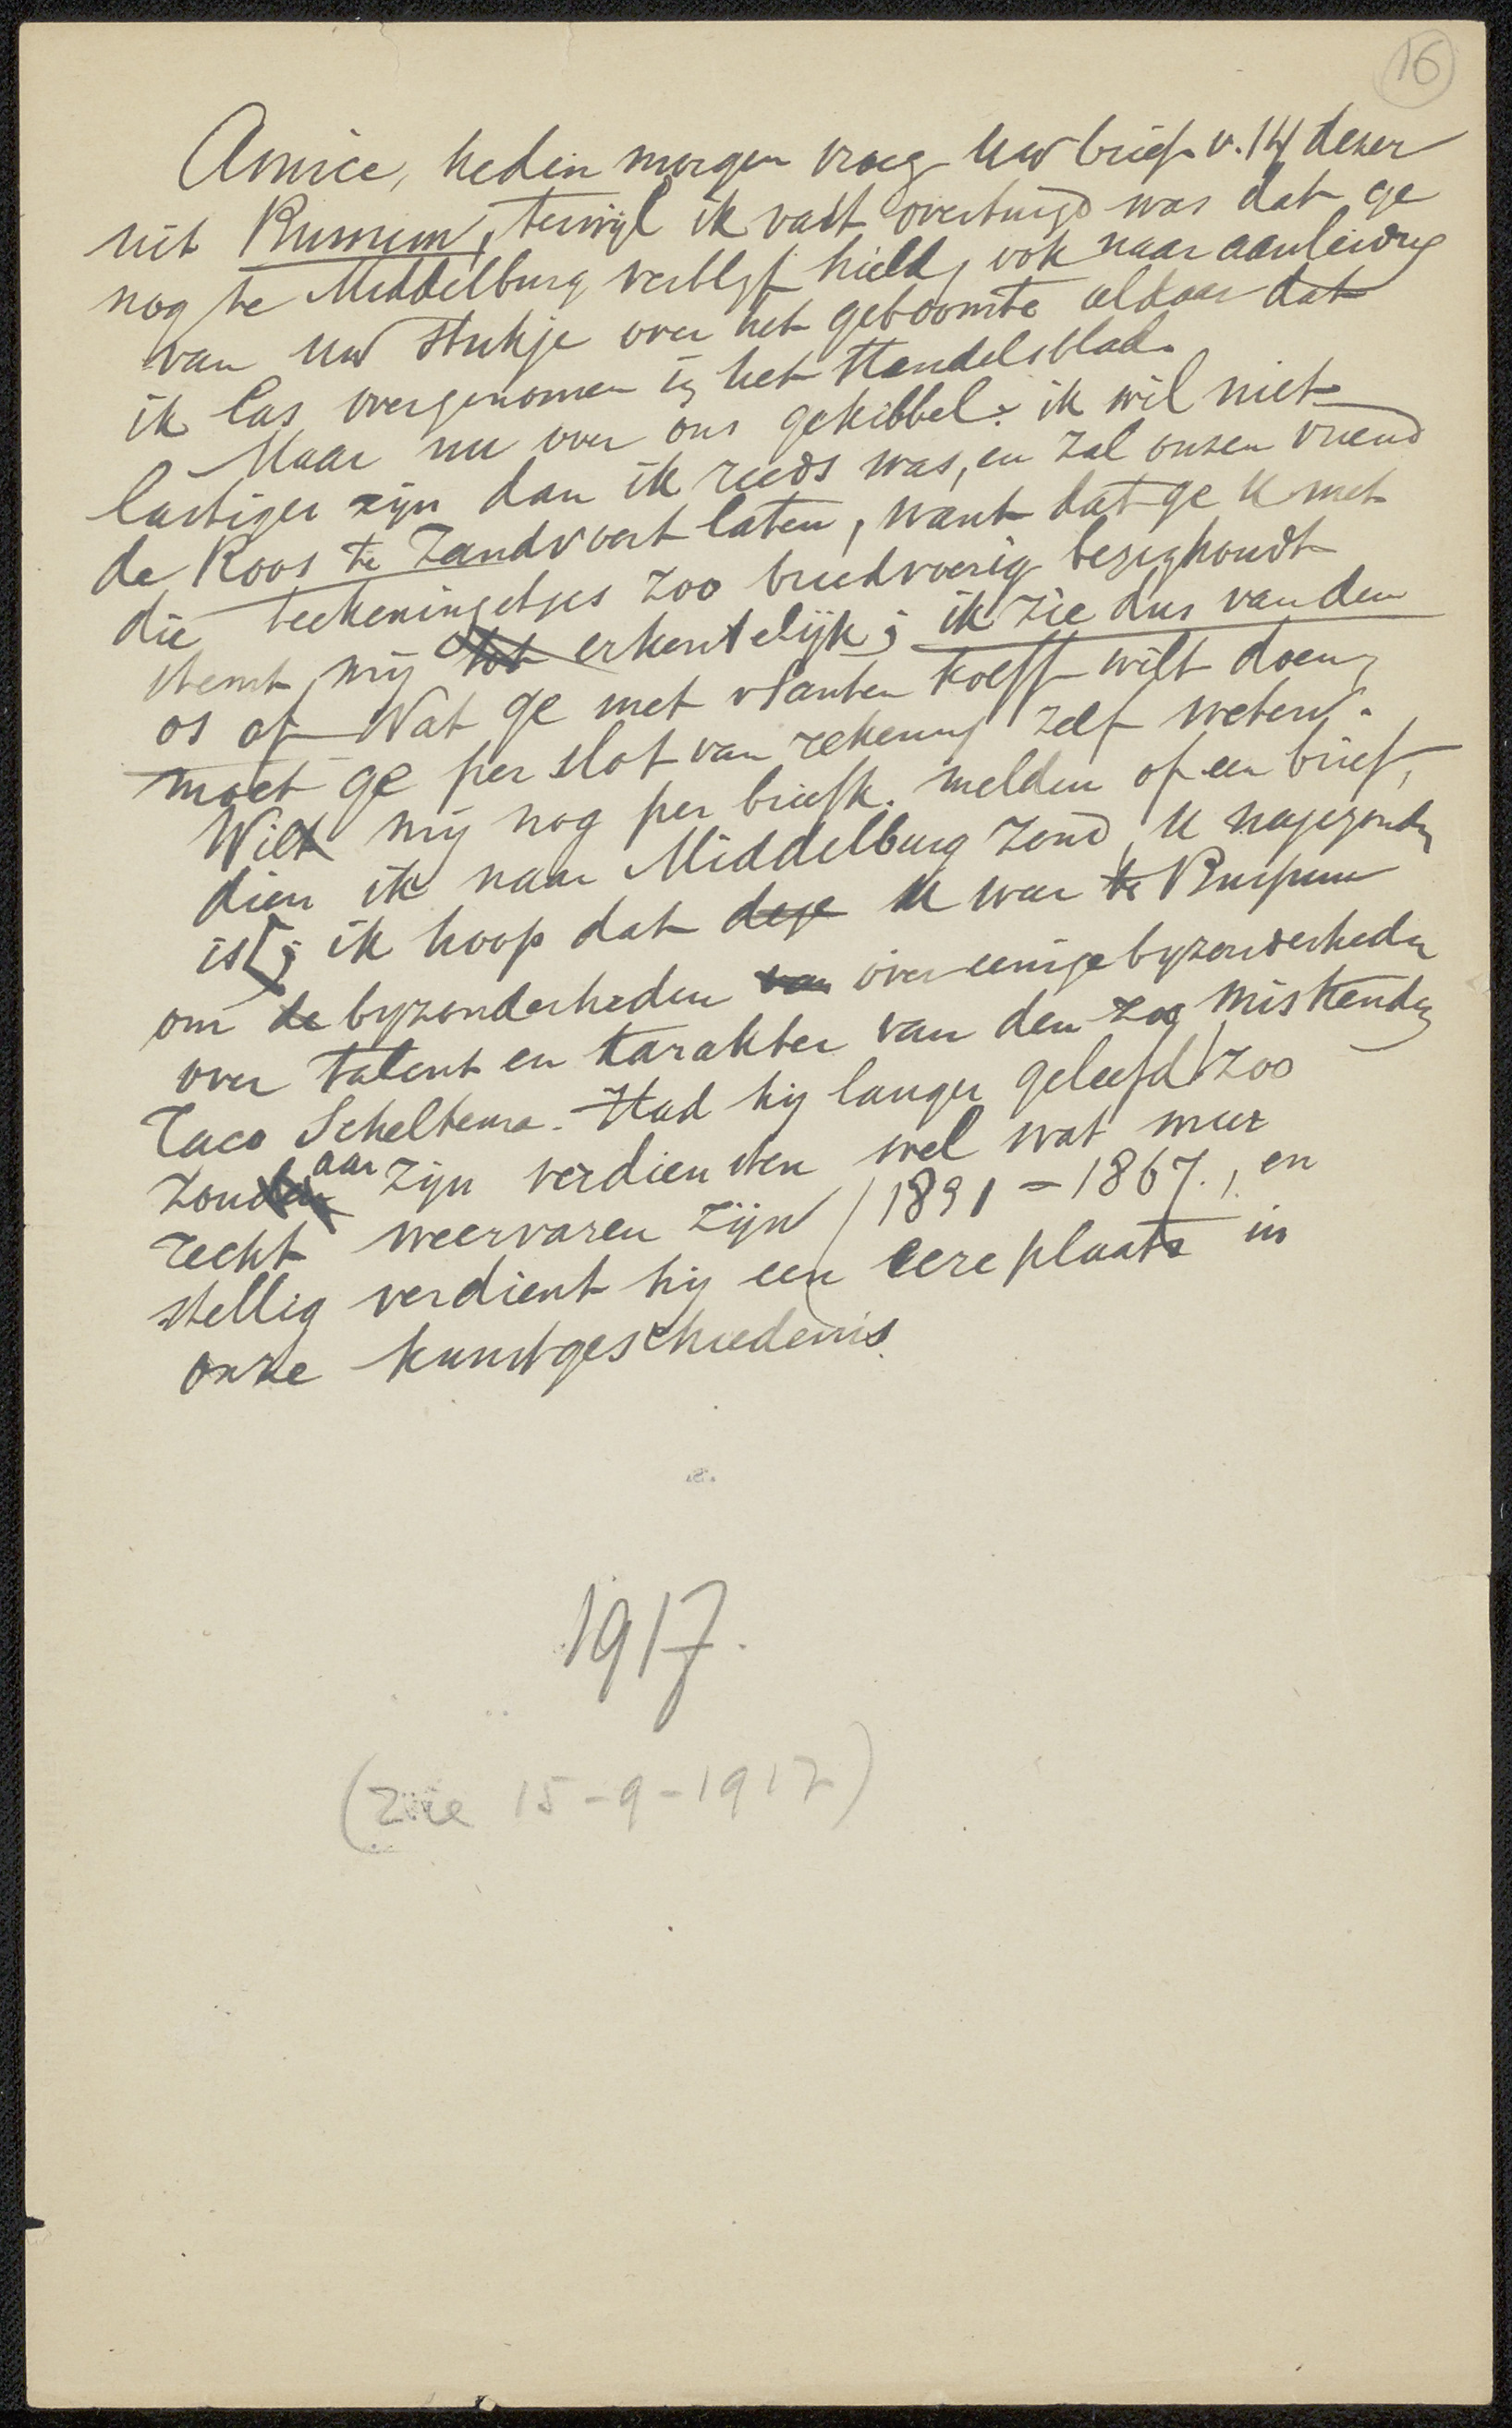 16
Amice, heden morgen vroeg Uw brief v. 14 dezer
uit Bussum, terwijl ik vast overtuigd was dat ge
nog te Middelburg verblijf hield, ook naar aanleiding
van Uw stukje over het geboomte aldaar dat
ik las overgenomen in het Handelsblad.
Maar nu over ons gekibbel: ik wil niet
lastiger zijn dan ik reeds was, en zal onzen vriend
de Roos te Zandvoort laten, want dat ge U met
die teekeningetjes zoo breedvoerig bezighoudt
stemt mij tot erkentelijk; ik zie dus van den
os af Wat ge met tanten wilt doen,
moet ge per slot van rekening zelf weten.
Wilt mij nog per briefk. melden of een brief,
dien ik naar Middelburg zond, U nagezonden
is; ik hoop dat deze U war te Bussum
om de byzonderheden van over eenige byzonderheden
over talent en karakter van den zoo miskenden
Taco Scheltema. Had hij langer geleefd, zoo
zouden aan zijn verdiensten wel wat meer
recht weervaren zijn (1831 - 1867.), en
stellig verdient hij een eereplaats in
onze kunstgeschiedenis.
1917.
(zie 15-9-1917)